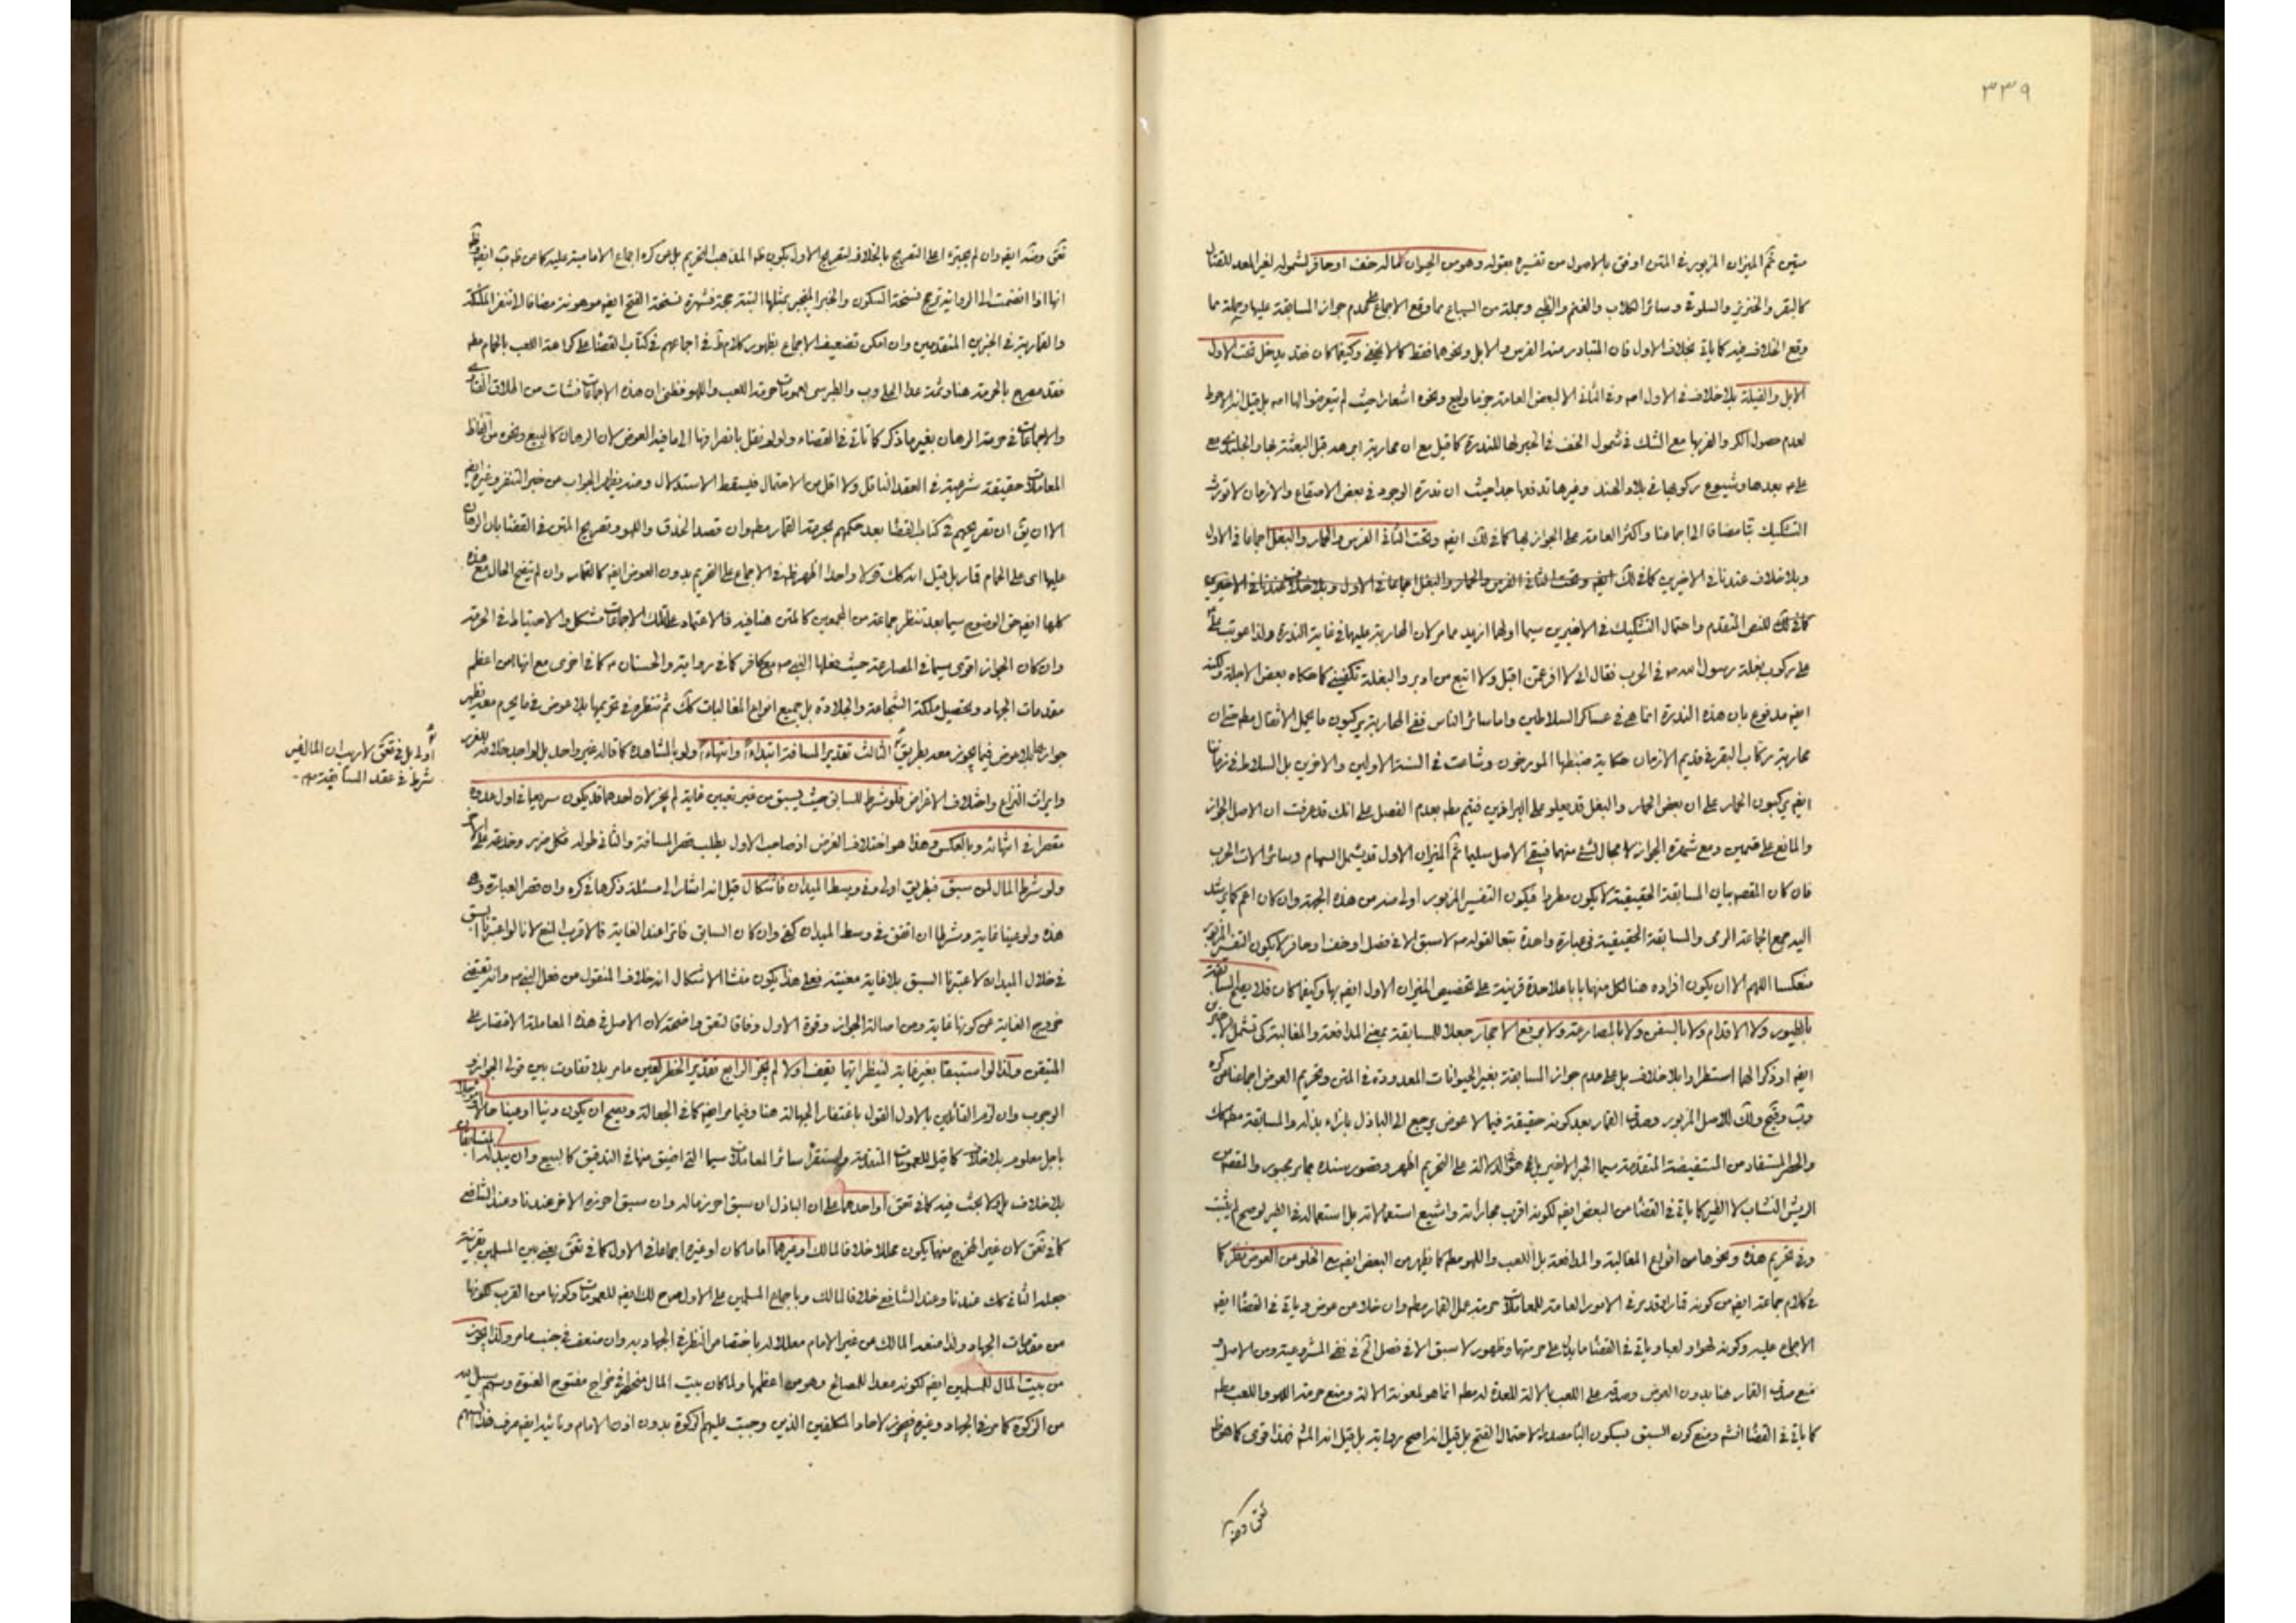 ٣٣٩
متين ثم الميزان المزبور في المتن اوفق بالاصول من تفسيره بقوله وهو من الحيوان كماله خف او حافر لشموله لغير المعد للقتال
كالبقر والخنزير والسلوقي وسائر الكلاب والغنم والظبي وجملة من السباع مما وقع الاجماع على عدم جواز المسابقة عليها وجملة مما
وقع الخلاف فيه كما ياتي بخلاف الاول فان المتبادر منه الفرس والابل ونحوهما فقط كما لا يخفى وكيفما كان فقد يدخل تحت الاول
الابل والفيلة بلا خلاف في الاول اصه وفي الثاني الا لبعض العامة ونحوه اشعار حيث لم يتعرضوا لها اصه بل قيل انه الاحوط
لعدم حصول الكر والفر بها مع الشك في شمول الخف في الخبر لها للندرة كما قيل مع ان محاربة ابرهه قبل البعثة بها
بعدها وشيوع ركوبها في بلاد الهند وغيرها تدفعها جدا حيث ان ندرة الوجود في بعض الاصقاع والازمان لا تورث
التشكيك مضافا الى اجماعنا واكثر العامة على الجواز بها كما في لك ايضه وتحت الثاني الفرس والحمار والبغل اجماعا في الاول
وبلا خلاف عندنا في الاخيرين كما في لك ايضه وتحت الثاني الفرس والحمار والبغل اجماعا في الاول وبلا خلاف عندنا في الاخيرين
كما في لك للنص المتقدم واحتمال التشكيك في الاخيرين سيما اولهما ازيد مما مر لان المحاربة عليها في غاية الندرة ولذا عوتب على
على ركوب بغلة رسول الله ص في الحرب فقال اني لا افر عمن اقبل ولا اتبع من ادبر والبغلة تكفيني كما حكاه بعض الاجلة ولكنه
ايضه مدفوع بان هذه الندرة انما هي في عساكر السلاطين واما سائر الناس ففي المحاربة يركبون ما يحمل الاثقال مطه حتى ان
محاربة ركاب البقر في قديم الازمان حكاية ضبطها المورخون وشاعت في السنة الاولين والاخرين بل السلاطين في زماننا
ايضه يركبون الحمار على ان بعض الحمار والبغل قد يعلو على البراذين فيتم مطه بعدم الفصل على انك قد عرفت ان الاصل الجواز
والمانع على قسمين ومع شهرة الجواز لا مجال لشئ منهما فيبقى الاصل سليما ثم الميزان الاول قد يشمل السهام وسائر الات الحرب
فان كان المقصه بيان المسابقة الحقيقية لا يكون مطردا فيكون التفسير المزبور اولى منه من هذه الجهة وان كان اعم كما يرشد
اليه جمع جماعة الرمي والمسابقة الحقيقية في عبارة واحدة تبعا لقوله ص لا سبق الا في نصل او خف او حافر لا يكون التفسير المزبور
منعكسا اللهم الا ان يكون افراده هنا لكل منها بابا على حدة قرينة على تخصيص الميزان الاول ايضه بها وكيفما كان فلا يصح المسابقة
بالطيور ولا الاقدام ولا بالسفن ولا بالمصارعة ولا برفع الاحجار جعلا للمسابقة بمعنى المدافعة والمغالبة كي تشمل الاخيرين
ايضه او ذكرا لهما استطرادا بلا خلاف بل على عدم جواز المسابقة بغير الحيوانات المعدودة في المتن وتحريم العوض اجماعنا عن كره
وتب وفتح ولك للاصل المزبور وصدق القمار بعد كونه حقيقة فيما لا عوض يرجع الى الباذل بازاء بذله والمسابقة مطه كك
والحظر المستفاد من المستفيضة المتقدمة سيما الخبر الاخير بل هو الدلالة على التحريم اظهر وقصور سنده بما مر مجبور والمقصه من
الريش النشاب لا الطير كما ياتي في القضا من البعض ايضه لكونه اقرب مجازاته واشيع استعمالاته بل استعماله في الطير لو صح لم يثبت
وفي تحريم هذه ونحوها من انواع المغالبة والمدافعة بل اللعب واللهو مطه كما يظهر من البعض ايضه مع الخلو من العوض نظر كما
في كلام جماعة ايضه من كونه قمارا وقد مر في الامور العامة للمعاملات حرمة عمل القمار مطه وان خلا من عوض وياتي في القضا ايضه
الاجماع عليه وكونه لهوا ولعبا وياتي في القضا ما يدل على حرمتها وظهور لا سبق الا في نصل الخ في نفي المشروعية ومن الاصل و
منع صدق القمار هنا بدون العوض وصدقه على اللعب بالالة المعدة له مطه انما هو لمعونة الالة ومنع حرمة اللهو واللعب مطه
كما ياتي في القضا انشه ومنع كون السبق بسكون البا مصدرا لاحتمال الفتح بل قيل انه اصح رواية بل قيل انه المشه فهذا اقوى كما هو ظ
تحق ومنه
تحق ومنه ايضه وان لم يجترء اعلى التصريح بالخلاف لتصريح الاول بكون ظه المذهب التحريم بل عن كره اجماع الامامية عليه كما من ظه تب ايضه
انها اذا انضمت الى الرواية ترجح نسخة السكون والخبر المنجبر بمثلها البتة حجة فشهرة نسخة الفتح ايضه موهونة مضافا لا تنفر الملئكة
والقمارية في الخبرين المتقدمين وان امكن تضعيف الاجماع بظهور كلام في اجماعهم في كتاب القضا على كراهة اللعب بالحمام مطه
فقد صرح بالحرمة هنا وثمة عدا الحلي وب والطبرسي لعمومات حرمة اللعب واللهو فظني ان هذه الاجماعات نشات من اطلاق الفتاوى
والاجماعات في حرمة الرهان بغير ما ذكر كما تاتي في القضاء ولو لم نقل بانصرافها الى ما فيه العوض لان الرهان كالبيع ونحوه من الفاظ
المعاملات حقيقة شرعية في العقد الناقل ولا اقل من الاحتمال فيسقط الاستدلال ومنه يظهر الجواب عن خبر التنفر وغيره ايضه
الا ان يق ان تصريحهم في كتاب القضا بعد حكمهم بحرمة القمار مطه وان قصد الحذق واللهو وتصريح المتن في القضا بان الرهان
عليها اى على الحمام قمار بل قيل انه كك قولا واحدا اظهر ظه في الاجماع على التحريم بدون العوض ايضه كالقمار وان لم يتضح الحال مع هذه
كلها ايضه حق الوضوح سيما بعد تنظر جماعة من المجمعين كالمتن هنا فيه فالاعتماد على تلك الاجماعات مشكل والاحتياط في الحرمة
وان كان الجواز اقوى سيما في المصارعة حيث فعلها النبي ص مع كافر كما في رواية والحسنان ع كما في اخرى مع انها من اعظم
مقدمات الجهاد وتحصيل ملكة الشجاعة والجلادة بل جميع انواع المغالبات كك ثم تنظرهم في تحريمها بلا عوض فيما يحرم معه يظهر
جوازها بلا عوض فيما يجوز معه بطريق الثالث تقدير المسافة ابتداء وانتهاء ولو بالمشاهدة كما قاله غير واحد بل لم اجد خلافه للغرر
اولى بل في تحق لا ريب ان المال ليس
شرطا في عقد المسابقة مه
وايراث النزاع واختلاف الاغراض فلو شرط للسابق حيث يسبق من غير تعيين غاية لم يجز لان احدهما قد يكون سريعا في اول عدوه
مقصرا في انتهائه وبالعكس وهذا هو اختلاف الغرض اذ صاحب الاول يطلب قصر المسافة والثاني طوله
ولو شرط المال لمن سبق فبطريق اولى وفي وسط الميدان فاشكال قيل انه اشار الى مسئلة ذكرها في كره وان قصر العبارة وهي
هذه ولو عينا غاية وشرطا ان اتفق في وسط الميدان كفى وان كان السابق فاترا عند الغاية فالاقرب المنع لانا لو اعتبرنا السبق
في خلال الميدان لاعتبرنا السبق بلا غاية معينة فعلى هذا يكون منشا الاشكال انه خلاف المنقول من فعل النبي ص وانه يقتضي
خروج الغاية عن كونها غاية ومن اصالة الجواز وقوة الاول وفاقا لتحق واضحة لان الاصل في هذه المعاملة الاقتصار على
المتيقن وكذا لو استبقا بغير غاية لينظر ايهما يقف اولا لم يجز الرابع تقدير الخطر لعين ما مر بلا تفاوت بين قولي الجواز و
الوجوب وان لزم القائلين بالاول القول باغتفار الجهالة هنا وفيما مر ايضه كما في الجعالة ويصح ان يكون دينا او عينا حالا او مؤجلا
باجل معلوم بلا خلاف كما قيل للعمومات المتقدمة واستقراء سائر المعاملات سيما التي اضيق منها في التدقيق كالبيع وان يبذله المتسابقان
بلا خلاف بل ولا بحث فيه كما في تحق او احدهما على ان الباذل ان سبق احرز ماله وان سبق احرزه الاخر عندنا وعند الشافعي
كما في تحق لان غير المخرج منهما يكون محللا خلافا لمالك او غيرهما اماما كان او غيره اجماعا في الاول كما في تحق يعني بين المسلمين بقرينة
جعله الثاني كك عندنا وعند الشافعي خلافا لمالك وباجماع المسلمين على الاول صرح لك ايضه للعمومات وكونها من القرب لكونها
من مقدمات الجهاد ولذا منعه المالك من غير الامام معللا له باختصاص النظر في الجهاد به وان منعف في جنب ما مر وكذا يجوز
من بيت المال للمسلمين ايضه لكونه معدا للمصالح وهو من اعظمها ولما كان بيت المال منحصرا في خراج مفتوح العنوة وسهم سبيل الله
من الزكوة كما مر في الجهاد وغيره فيجوز لاحاد المكلفين الذين وجبت عليهم الزكوة بدون اذن الامام ونائبه ايضه صرف هذا السهم